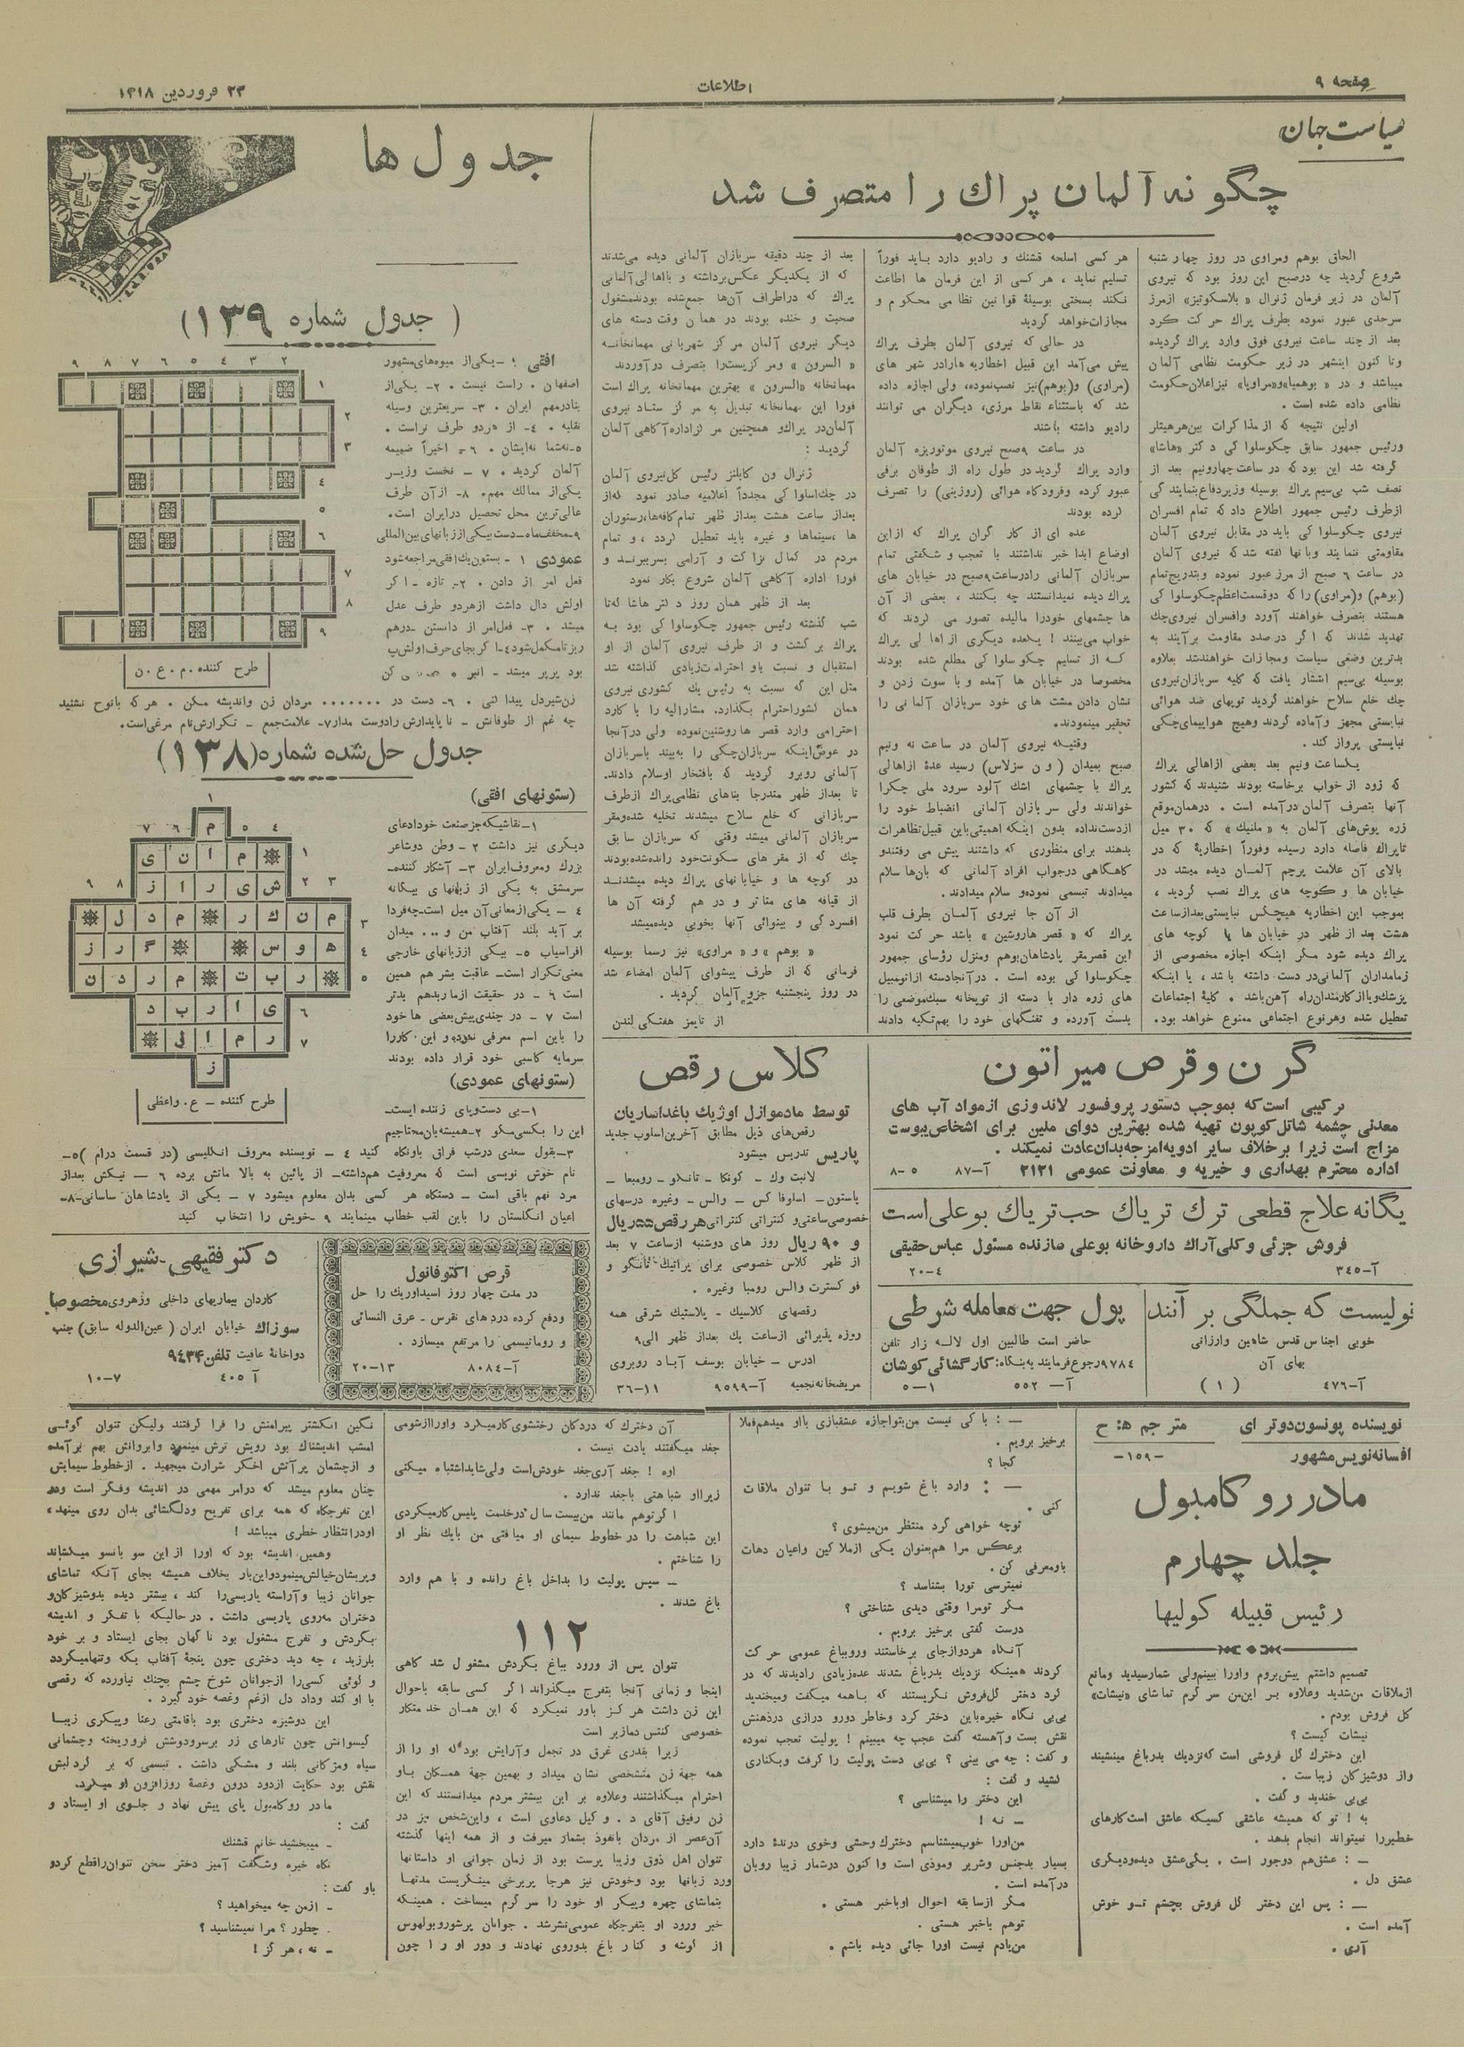 صفحه ۹
اطلاعات
۲۳ فروردین ۱۳۱۸
سیاست جهان
چگونه آلمان پراك را متصرف شد
الحاق بوهم ومراوی در روز چهارشنبه
شروع گردید چه درصبح این روز بود که نیروی
آلمان در زیر فرمان ژنرال « بلاسکوتیز» ازمرز
سرحدی عبور نموده بطرف پراك حرکت کرد
بعد از چند ساعت نیروی فوق وارد پراك گردیده
وتا کنون اینشهر در زیر حکومت نظامی آلمان
نظامی داده شده است .
اولین نتیجه که از مذاکرات بین هرهیتلر
ورئیس جمهور سابق چکوسلواکی دکتر «هاشا»
گرفته شد این بود که در ساعت چهارونیم بعد از
نصف شب بی‌سیم پراك بوسیله وزیردفاع بنمایندگی
ازطرف رئیس جمهور اطلاع داد که تمام افسران
نیروی چکوسلواکی باید در مقابل نیروی آلمان
مقاومتی ننمایند وبآنها گفته شد که نیروی آلمان
در ساعت ٦ صبح از مرز عبور نموده وبتدریج تمام
(بوهم) و(مراوی) را که دوقسمت اعظم چکوسلواکی
هستند بتصرف خواهند آورد وافسران نیروی چك
تهدید شدند که اگر در صدد مقاومت برآیند به
بدترین وضعی سیاست ومجازات خواهند شد بعلاوه
بوسیله بی‌سیم انتشار یافت که کلیه سربازان نیروی
چك خلع سلاح خواهند گردید توپهای ضد هوائی
نبایستی مجهز وآماده گردند وهیچ هواپیمای چکی
نبایستی پرواز کند .
یکساعت ونیم بعد بعضی ازاهالی پراك
که زود از خواب برخاسته بودند شنیدند که کشور
آنها بتصرف آلمان درآمده است . درهمان موقع
زره پوش‌های آلمان به « ملنیك » که ۳۰ میل
تا پراك فاصله دارد رسیده وفوراً اخطاریهٔ که در
بالای آن علامت پرچم آلمان دیده میشد در
خیابان ها وکوچه های پراك نصب گردید ،
بموجب این اخطاریه هیچکس نبایستی بعد از ساعت
هشت بعد از ظهر در خیابان ها یا کوچه های
پراك دیده شود مگر اینکه اجازه مخصوصی از
زمامداران آلمانی در دست داشته باشد ، یا اینکه
پزشك ویا از کارمندان راه آهن باشد . کلیهٔ اجتماعات
تعطیل شده وهرنوع اجتماعی ممنوع خواهد بود.
هر کسی اسلحه قشنك و رادیو دارد باید فوراً
تسلیم نماید ، هر کسی از این فرمان ها اطاعت
نکند بسختی بوسیلهٔ قوانین نظامی محکوم و
مجازات خواهد گردید
در حالی که نیروی آلمان بطرف پراك
پیش می‌آمد این قبیل اخطاریه هارا در شهر های
(مراوی) و(بوهم) نیز نصب نموده، ولی اجازه داده
شد که باستثناء نقاط مرزی، دیگران می توانند
رادیو داشته باشند
در ساعت ۹ صبح نیروی موتوریزه آلمان
وارد پراك گردید در طول راه از طوفان برفی
عبور کرده وفرودگاه هوائی (روزینی) را تصرف
کرده بودند
عده ای از کارگران پراك که از این
اوضاع ابدا خبر نداشتند با تعجب و شگفتی تمام
سربازان آلمانی رادر ساعت ۹ صبح در خیابان های
پراك دیده نمیدانستند چه بکنند ، بعضی از آن
ها چشمهای خودرا مالیده تصور می کردند که
خواب می‌بینند ! یکعده دیگری از اهالی پراك
که از تسلیم چکوسلواکی مطلع شده بودند
مخصوصا در خیابان ها آمده و با سوت زدن و
نشان دادن مشت های خود سربازان آلمانی را
تحقیر مینمودند.
وقتیکه نیروی آلمان در ساعت نه ونیم
صبح بمیدان (ون سزلاس) رسید عدهٔ ازاهالی
پراك با چشمهای اشك آلود سرود ملی چك را
خواندند ولی سربازان آلمانی انضباط خود را
ازدست نداده بدون اینکه اهمیتی باین قبیل تظاهرات
بدهند برای منظوری که داشتند پیش می رفتند و
گاهگاهی درجواب افراد آلمانی که بآن‌ها سلام
میدادند تبسمی نموده و سلام میدادند.
از آن جا نیروی آلمان بطرف قلب
پراك که « قصر هاروشین » باشد حرکت نمود
این قصر مقر پادشاهان بوهم ومنزل رؤسای جمهور
چکوسلواکی بوده است . در آنجا دسته از اتومبیل
های زره دار با دسته از توپخانه سبك موضعی را
بدست آورده و تفنگهای خود را بهم تکیه دادند
بعد از چند دقیقه سربازان آلمانی دیده می‌شدند
که از یکدیگر عکس برداشته و با اهالی آلمانی
پراك که در اطراف آن‌ها جمع شده بودند مشغول
صحبت و خنده بودند در همان وقت دسته های
دیگر نیروی آلمان مرکز شهربانی مهمانخانه
« السرون » ومرکز پست را بتصرف در آوردند
مهمانخانه «السرون » بهترین مهمانخانه پراك است
فورا این مهمانخانه تبدیل به مرکز ستاد نیروی
آلمان در پراك و همچنین مرکز اداره آگاهی آلمان
گردید :
ژنرال ون کابلنز رئیس کل نیروی آلمان
در چك اسلواکی مجدداً اعلامیه صادر نمود که از
بعد از ساعت هشت بعد از ظهر تمام کافه‌ها، رستوران
ها ، سینماها و غیره باید تعطیل گردد ، و تمام
مردم در کمال نزاکت و آرامی بسر برند و
فورا اداره آگاهی آلمان شروع بکار نمود
بعد از ظهر همان روز دکتر هاشا که تا
شب گذشته رئیس جمهور چکوسلواکی بود به
پراك برگشت و از طرف نیروی آلمان از او
استقبال و نسبت باو احترامات زیادی گذاشته شد
مثل این که نسبت به رئیس یك کشوری نیروی
همان کشور احترام بگذارد. مشارالیه را با گارد
احترامی وارد قصر ها روشنین نموده ولی در آنجا
در عوض اینکه سربازان چکی را به‌بیند با سربازان
آلمانی روبرو گردید که بافتخار او سلام دادند.
تا بعد از ظهر متدرجا بناهای نظامی پراك از طرف
سربازانی که خلع سلاح میشدند تخلیه شده و مقر
سربازان آلمانی میشد وقتی که سربازان سابق
چك که از مقر های سکونت خود رانده شده بودند
در کوچه ها و خیابانهای پراك دیده میشدند
از قیافه های متاثر و در هم گرفته آن ها
افسردگی و بینوائی آنها بخوبی دیده میشد
« بوهم » و « مراوی» نیز رسما بوسیله
فرمانی که از طرف پیشوای آلمان امضاء شد
در روز پنجشنبه جزو آلمان گردید .
از تایمز هفتگی لندن
جدول ها
( جدول شماره ۱۳۹ )
افقی ۱ – یکی از میوه های مشهور
اصفهان . راست نیست . ۲- یکی از
بنادر مهم ایران . ۳- سریعترین وسیله
نقلیه . ٤- از هردو طرف تراست .
۵- نه شما نه ایشان . ٦- اخیراً ضمیمه
آلمان گردید. ۷ – نخست وزیر
یکی از ممالك مهم. ۸- از آن طرف
عالی‌ترین محل تحصیل در ایران است.
۹- مخفف ماه – دست – یکی از زبانهای بین المللی
عمودی ۱ – بستون یك افقی مراجعه شود
فعل امر از دادن . ۲- تازه – اگر
اولش دال داشت از هردو طرف عدل
میشد . ۳- فعل امر از دانستن – درهم
زن شیردل پیدا کنی . ٦- دست در ....... مردان زن واندیشه مکن . هرکه بانوح نشیند
چه غم از طوفانش – نا پایدارش رادوست مدار ۷- علامت جمع – تکرارش نام مرغی است.
طرح کننده م . ع . ن
جدول حل شده شماره (۱۳۸)
(ستونهای افقی)
۱- نقاشیکه جز صنعت خود ادعای
دیگری نیز داشت ۲- وطن دوشاعر
بزرك ومعروف ایران ۳- آشکار کننده-
سرمشق به یکی از زبانهای بیگانه
٤- یکی از معانی آن میل است – چه فردا
بر آید بلند آفتاب من و ... میدان
افراسیاب ۵- بیکی از زبانهای خارجی
معنی تکرار است – عاقبت بشر هم همین
است ٦ – در حقیقت از مار بدهم بدتر
است ۷ – در چندی پیش بعضی ها خود
را باین اسم معرفی نموده و این کار را
سرمایه کاسبی خود قرار داده بودند
(ستونهای عمودی)
۱- بی دست و پای زننده ایست-
این را بکسی مگو ۲- همیشه بآن محتاجیم
۳- بقول سعدی درشب فراق باو نگاه کنید ٤ – نویسنده معروف انگلیسی (در قسمت درام ) ۵-
نام خوش نویسی است که معروفیت هم داشته – از پائین به بالا ماتش برده ٦ – نیکش بعد از
مرد نهم باقی است – دستگاه هر کسی بدان معلوم میشود ۷ – یکی از پادشاهان ساسانی ۸-
اعیان انگلستان را باین لقب خطاب مینمایند ۹- خویش را انتخاب کنید
طرح کننده – ع . واعظی
گرن و قرص میراتون
ترکیبی است که بموجب دستور پروفسور لاندوزی از مواد آب های
معدنی چشمه شاتل گویون تهیه شده بهترین دوای ملین برای اشخاص یبوست
مزاج است زیرا برخلاف سایر ادویه امزجه بدان عادت نمیکند .
اداره محترم بهداری و خیریه و معاونت عمومی ۲۱۲۱ آ-۸۷ ۵-۸
یگانه علاج قطعی ترك تریاك حب تریاك بوعلی است
فروش جزئی وکلی آراك داروخانه بوعلی سازنده مسئول عباس حقیقی
آ-۳۴۵ ۴-۲۰
تو لیست که جملگی بر آنند
خوبی اجناس قدس شاهین وارزانی
بهای آن
آ-۴۷۶ ( ۱ )
پول جهت معامله شرطی
حاضر است طالبین اول لاله زار تلفن
۹۷۸۴ رجوع فرمایند به بنگاه: کارگشائی کوشان
آ – ۵۵۲ ۱-۵
کلاس رقص
توسط مادموازل اوژنیك باغداساریان
رقص‌های ذیل مطابق آخرین اسلوب جدید
پاریس تدریس میشود
لانبت وك – کونگا – تانگو – رومبعا –
باستون – اسلوفاکس – والس – وغیره درسهای
خصوصی ساعتی و کنتراتی کنتراتی هر رقص ۵۵ ریال
و ۹۰ ریال روز های دوشنبه از ساعت ۷ بعد
از ظهر کلاس خصوصی برای پراتیك تانگو و
فوکسترت والس رومبا وغیره .
رقصهای کلاسیك – پلاستیك شرقی همه
روزه پذیرائی از ساعت یك بعد از ظهر الی ۹
ادرس – خیابان یوسف آباد روبروی
مریضخانه نجمیه آ-۹۵۹۹ ۱۱-۳۶
قرص اکتوفانول
در مدت چهار روز اسیداوریك را حل
ودفع کرده دردهای نقرس – عرق النسائی
و روماتیسمی را مرتفع میسازد .
آ-۸۰۸۴ ۱۳-۲۰
دکتر فقیهی-شیرازی
کاردان بیماریهای داخلی وزهروی مخصوصا
سوزاك خیابان ایران ( عین الدوله سابق) جنب
دواخانهٔ عافیت تلفن ۹۴۳۴
آ ۴۰۵ ۷-۱۰
نویسنده پونسون دوترای مترجم ه: ح
افسانه نویس مشهور -۱۵۹-
مادر روکامبول
جلد چهارم
رئیس قبیله کولیها
تصمیم داشتم پیش بروم واورا ببینم ولی شمارسیدید ومانع
ازملاقات من شدید وعلاوه بر این من سرگرم تماشای «نیشات»
گل فروش بودم .
نیشات کیست ؟
این دخترك گل فروشی است که نزدیك بدرباغ مینشیند
واز دوشیزگان زیباست .
بی‌بی خندید و گفت .
به ! تو که همیشه عاشقی کسیکه عاشق است کارهای
خطیررا نمیتواند انجام بدهد .
– : عشق هم دوجور است . یکی عشق دیده ودیگری
عشق دل .
– : پس این دختر گل فروش بچشم تو خوش
آمده است .
آری .
– : باکی نیست من بتو اجازه عشقبازی با او میدهم فعلا
برخیز برویم .
کجا ؟
– : وارد باغ شویم و تو با تنوان ملاقات
کنی .
توچه خواهی کرد منتظر من میشوی ؟
برعکس مرا هم بعنوان یکی از ملاکین واعیان دهات
باو معرفی کن .
نمیترسی تورا بشناسد ؟
مگر تو مرا وقتی دیدی شناختی ؟
درست گفتی برخیز برویم .
آنگاه هردو از جای برخاستند وروبباغ عمومی حرکت
کردند همینکه نزدیك بدرباغ شدند عده زیادی را دیدند که در
گرد دختر گل فروش نگریستند که باهمه میگفت ومیخندید
بی‌بی نگاه خیره باین دختر کرد وخاطر دورو درازی در ذهنش
نقش بست و آهسته گفت عجب چه میبینم ! پولیت تعجب نموده
و گفت : چه می بینی ؟ بی‌بی دست پولیت را گرفت وبکناری
کشید و گفت :
این دختر را میشناسی ؟
– نه !
من اورا خوب میشناسم دخترك وحشی وخوی درندهٔ دارد
بسیار بدجنس وشریر وموذی است وا کنون درشمار زیبا رویان
در آمده است .
مگر از سابقه احوال او باخبر هستی .
توهم باخبر هستی .
من یادم نیست اورا جائی دیده باشم .
آن دخترك که دردکان رختشوی کارمیکرد واورا از شومی
جغد میگفتند یادت نیست .
اوه ! جغد آری جغد خودش است ولی شاید اشتباه میکنی
زیرا او شباهتی باجغد ندارد .
اگر توهم مانند من بیست سال در خدمت پلیس کار میکردی
این شباهت را در خطوط سیمای او میافتی من بایك نظر او
را شناختم .
– سپس پولیت را بداخل باغ رانده و با هم وارد
باغ شدند .
۱۱۲
تنوان پس از ورود بباغ بگردش مشغول شد گاهی
اینجا و زمانی آنجا بتفرج میگذراند اگر کسی سابقه باحوال
این زن داشت هرگز باور نمیکرد که این همان خدمتکار
خصوصی کنتس دمازیر است
زیرا بقدری غرق در تجمل وآرایش بود که او را از
همه جهة زن متشخصی نشان میداد و بهمین جهة همگان باو
احترام میگذاشتند وعلاوه بر این بیشتر مردم میدانستند که این
زن رفیق آقای د . وکیل دعاوی است ، واین شخص نیز در
آن عصر از مردان بانفوذ بشمار میرفت و از همه اینها گذشته
تنوان اهل ذوق وزیبا پرست بود از زمان جوانی او داستانها
ورد زبانها بود وخودش نیز هرجا پریرخی مینگریست مدتها
بتماشای چهره وپیکر او خود را سر گرم میساخت . همینکه
خبر ورود او بتفرجگاه عمومی نشر شد . جوانان پرشور وبولهوس
از گوشه و کنار باغ بدوروی نهادند و دور او را چون
نگین انگشتر پیرامنش را فرا گرفتند ولیکن تنوان گوئی
امشب اندیشناك بود رویش ترش مینمود وابروانش بهم بر آمده
و از چشمان پر آتش اخگر شرارت میجهید . از خطوط سیمایش
چنان معلوم میشد که درامر مهمی در اندیشه وفکر است ودر
این تفرجگاه که همه برای تفریح ودلگشائی بدان روی مینهند،
او در انتظار خطری میباشد !
وهمین اندیشه بود که اورا از این سو بانسو میکشاند
وپریشان خیالش مینمود و این بار بخلاف همیشه بجای آنکه تماشای
جوانان زیبا و آراسته پاریسی را کند ، بیشتر دیده بدوشیزگان و
دختران مهروی پاریسی داشت . در حالیکه با تفکر و اندیشه
بگردش و تفرج مشغول بود ناگهان بجای ایستاد و بر خود
بلرزید ، چه دید دختری چون پنجهٔ آفتاب یکه وتنها میگردد
و گوئی کسی را از جوانان شوخ چشم بچنك نیاورده که رقصی
با او کند وداد دل از غم وغصه خود گیرد .
این دوشیزه دختری بود باقامتی رعنا وپیکری زیبا
گیسوانش چون تارهای زر برسرودوشش فروریخته وچشمانی
سیاه ومژگانی بلند و مشکی داشت . تبسمی که بر گرد لبش
نقش بود حکایت از درد درون وغصهٔ روز افزون او میکرد.
مادر روکامبول پای پیش نهاد و جلوی او ایستاد و
گفت :
– میبخشید خانم قشنك
نگاه خیره وشگفت آمیز دختر سخن تنوان را قطع کرد و
باو گفت :
– از من چه میخواهید ؟
. چطور ؟ مرا نمیشناسید ؟
– نه ، هرگز !